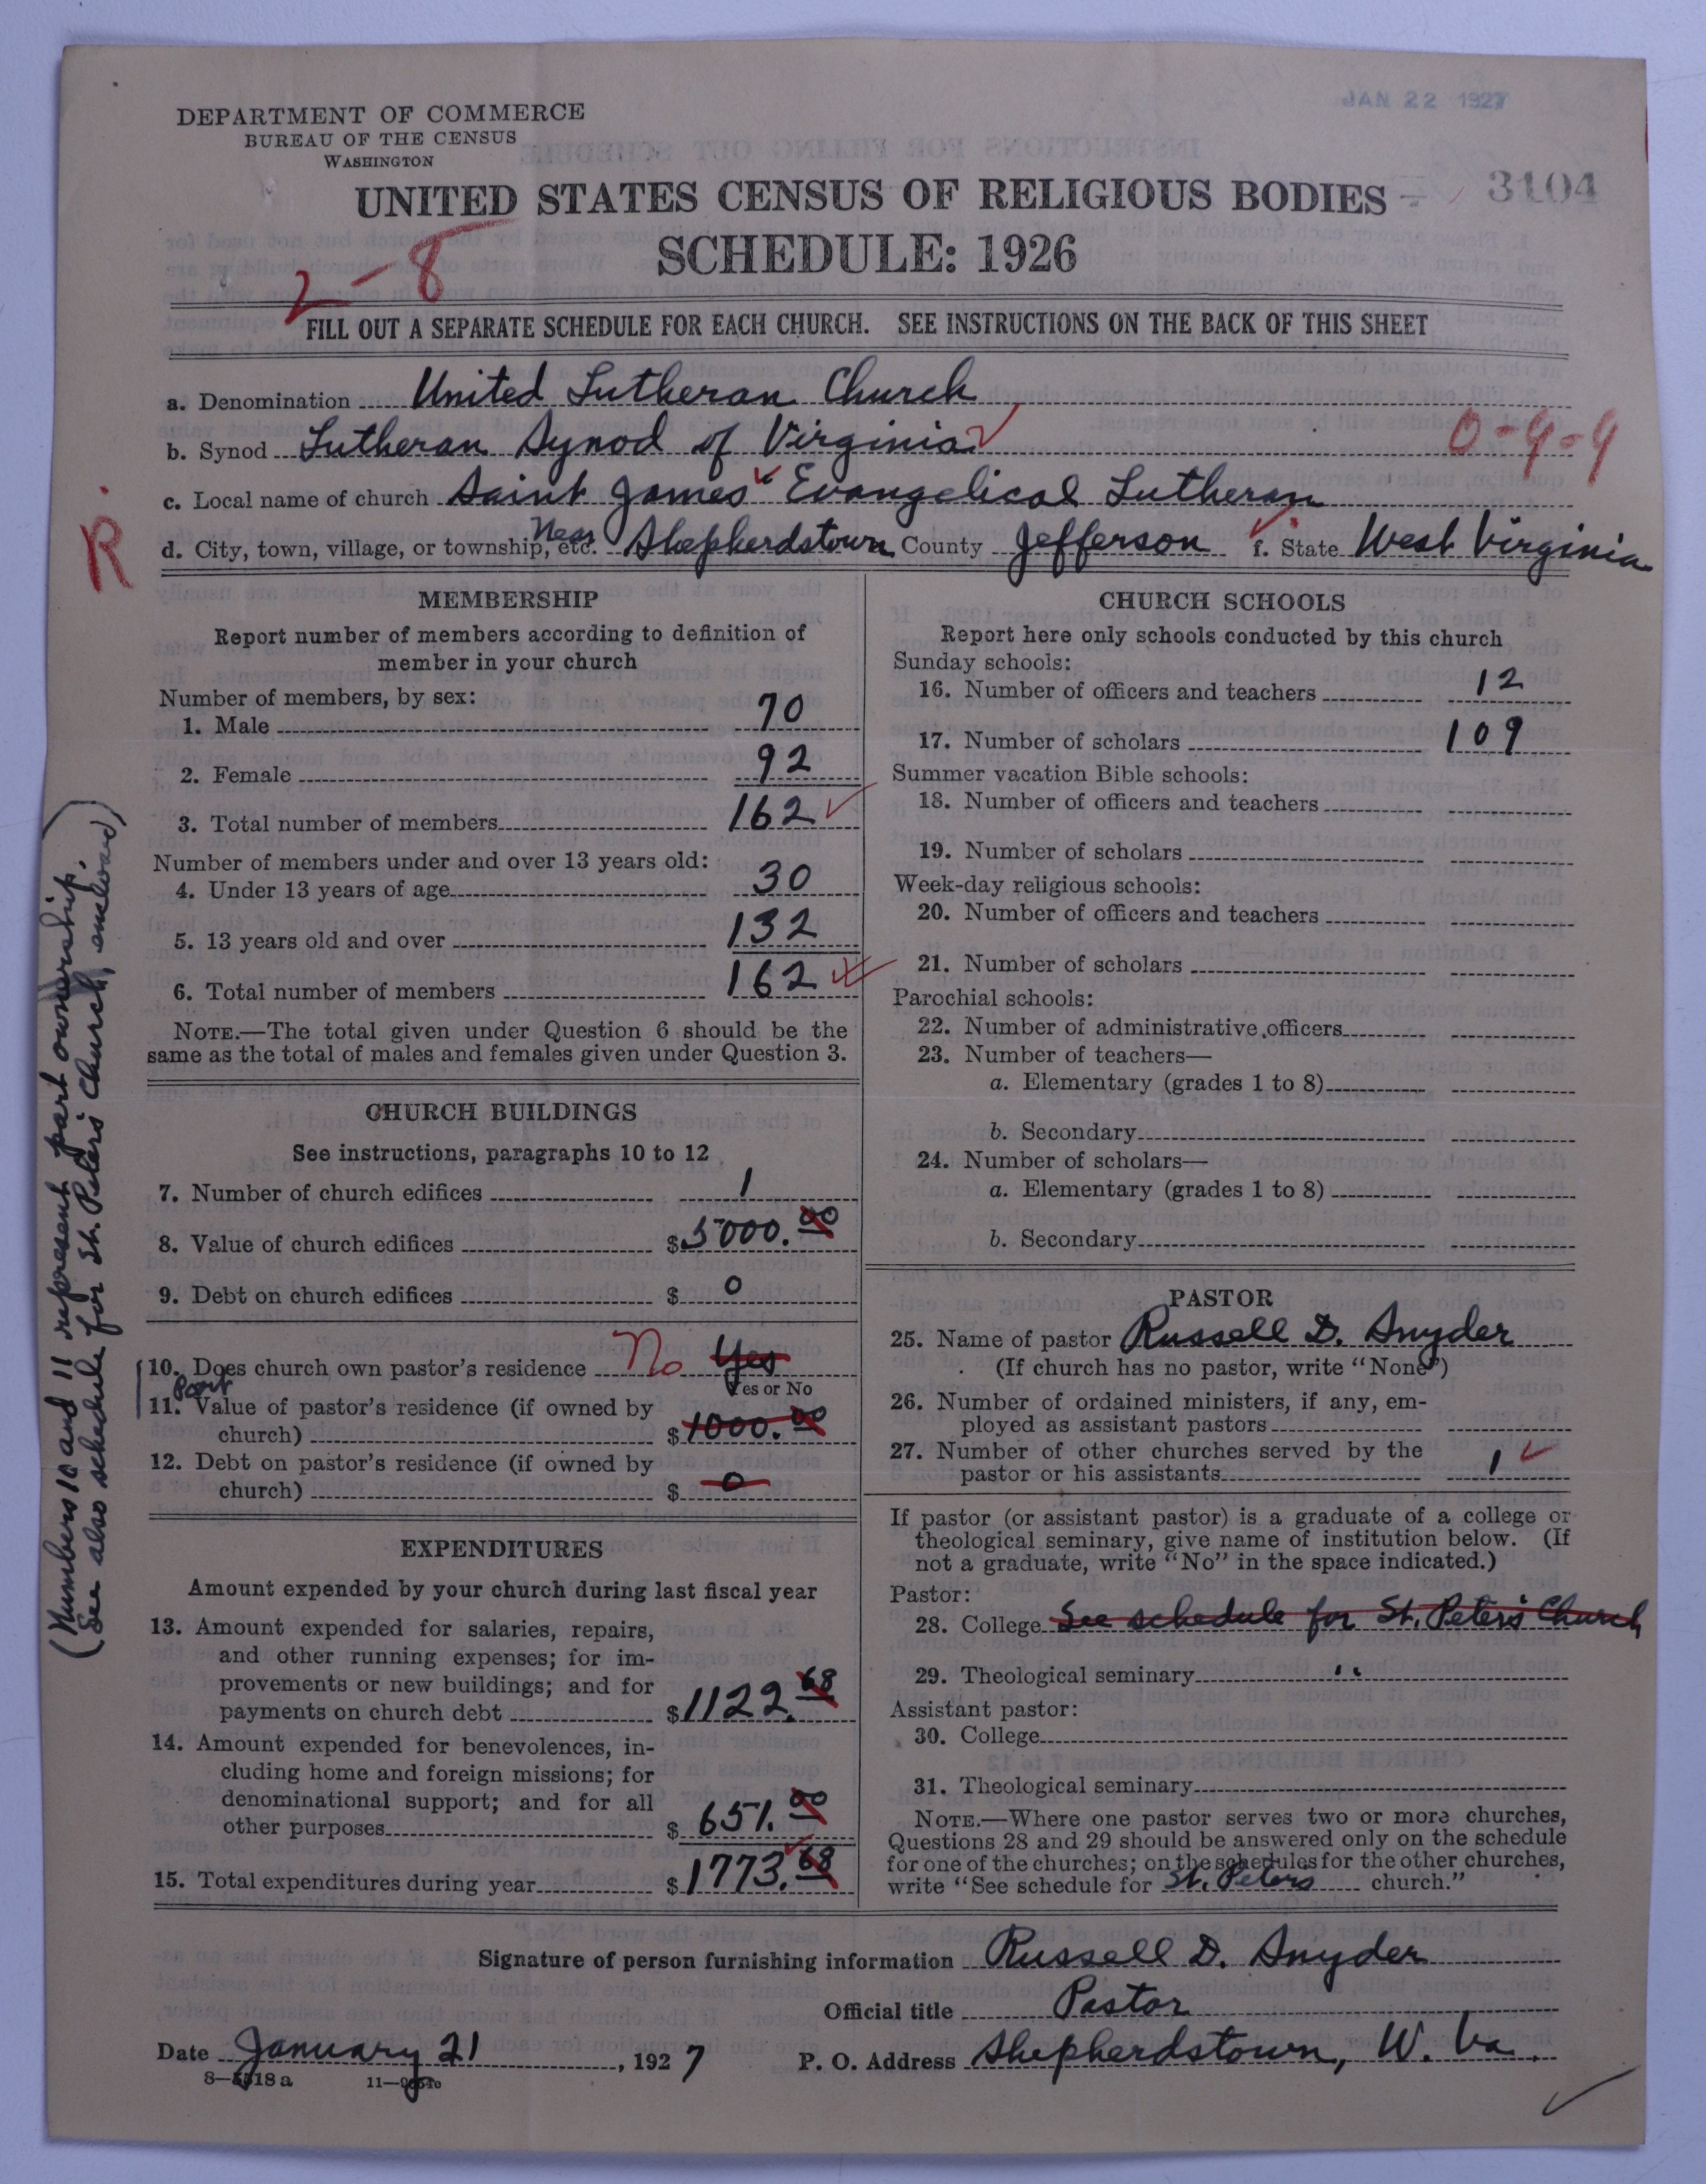 JAN 22 1927
DEPARTMENT OF COMMERCE
BUREAU OF THE CENSUS
WASHINGTON
UNITED STATES CENSUS OF RELIGIOUS BODIES
3104
SCHEDULE: 1926
2-8
FILL OUT A SEPARATE SCHEDULE FOR EACH CHURCH. SEE INSTRUCTIONS ON THE BACK OF THIS SHEET
a. Denomination United Lutheran Church
b. Synod Lutheran Synod of Virginia
0-9-9
c. Local name of church Saint James' Evangelical Lutheran
R
d. City, town, village, or township, etc. Near Shepherdstown County Jefferson f. State West Virginia
MEMBERSHIP
Report number of members according to definition of
member in your church
Number of members, by sex:
1. Male 70
2. Female 92
3. Total number of members 162
Number of members under and over 13 years old:
4. Under 13 years of age 30
5. 13 years old and over 132
6. Total number of members 162
NOTE.—The total given under Question 6 should be the
same as the total of males and females given under Question 3.
CHURCH BUILDINGS
See instructions, paragraphs 10 to 12
7. Number of church edifices 1
8. Value of church edifices $5000.00
9. Debt on church edifices $ 0
10. Does church own pastor's residence No Yes
Yes or No
Part
11. Value of pastor's residence (if owned by
church) $1000.00
12. Debt on pastor's residence (if owned by
church) $ 0
(Numbers 10 and 11 represent part ownership.
See also schedule for St. Peter's Church, enclosed)
EXPENDITURES
Amount expended by your church during last fiscal year
13. Amount expended for salaries, repairs,
and other running expenses; for im-
provements or new buildings; and for
payments on church debt $1122.68
14. Amount expended for benevolences, in-
cluding home and foreign missions; for
denominational support; and for all
other purposes $651.00
15. Total expenditures during year $1773.68
CHURCH SCHOOLS
Report here only schools conducted by this church
Sunday schools:
16. Number of officers and teachers 12
17. Number of scholars 109
Summer vacation Bible schools:
18. Number of officers and teachers
19. Number of scholars
Week-day religious schools:
20. Number of officers and teachers
21. Number of scholars
Parochial schools:
22. Number of administrative officers
23. Number of teachers—
a. Elementary (grades 1 to 8)
b. Secondary
24. Number of scholars—
a. Elementary (grades 1 to 8)
b. Secondary
PASTOR
25. Name of pastor Russell D. Snyder
(If church has no pastor, write "None")
26. Number of ordained ministers, if any, em-
ployed as assistant pastors
27. Number of other churches served by the
pastor or his assistants 1
If pastor (or assistant pastor) is a graduate of a college or
theological seminary, give name of institution below. (If
not a graduate, write "No" in the space indicated.)
Pastor:
28. College See schedule for St. Peter's Church
29. Theological seminary "
Assistant pastor:
30. College
31. Theological seminary
NOTE.—Where one pastor serves two or more churches,
Questions 28 and 29 should be answered only on the schedule
for one of the churches; on the schedules for the other churches,
write "See schedule for St. Peters church."
Signature of person furnishing information Russell D. Snyder
Official title Pastor
Date January 21, 1927 P. O. Address Shepherdstown, W. Va.